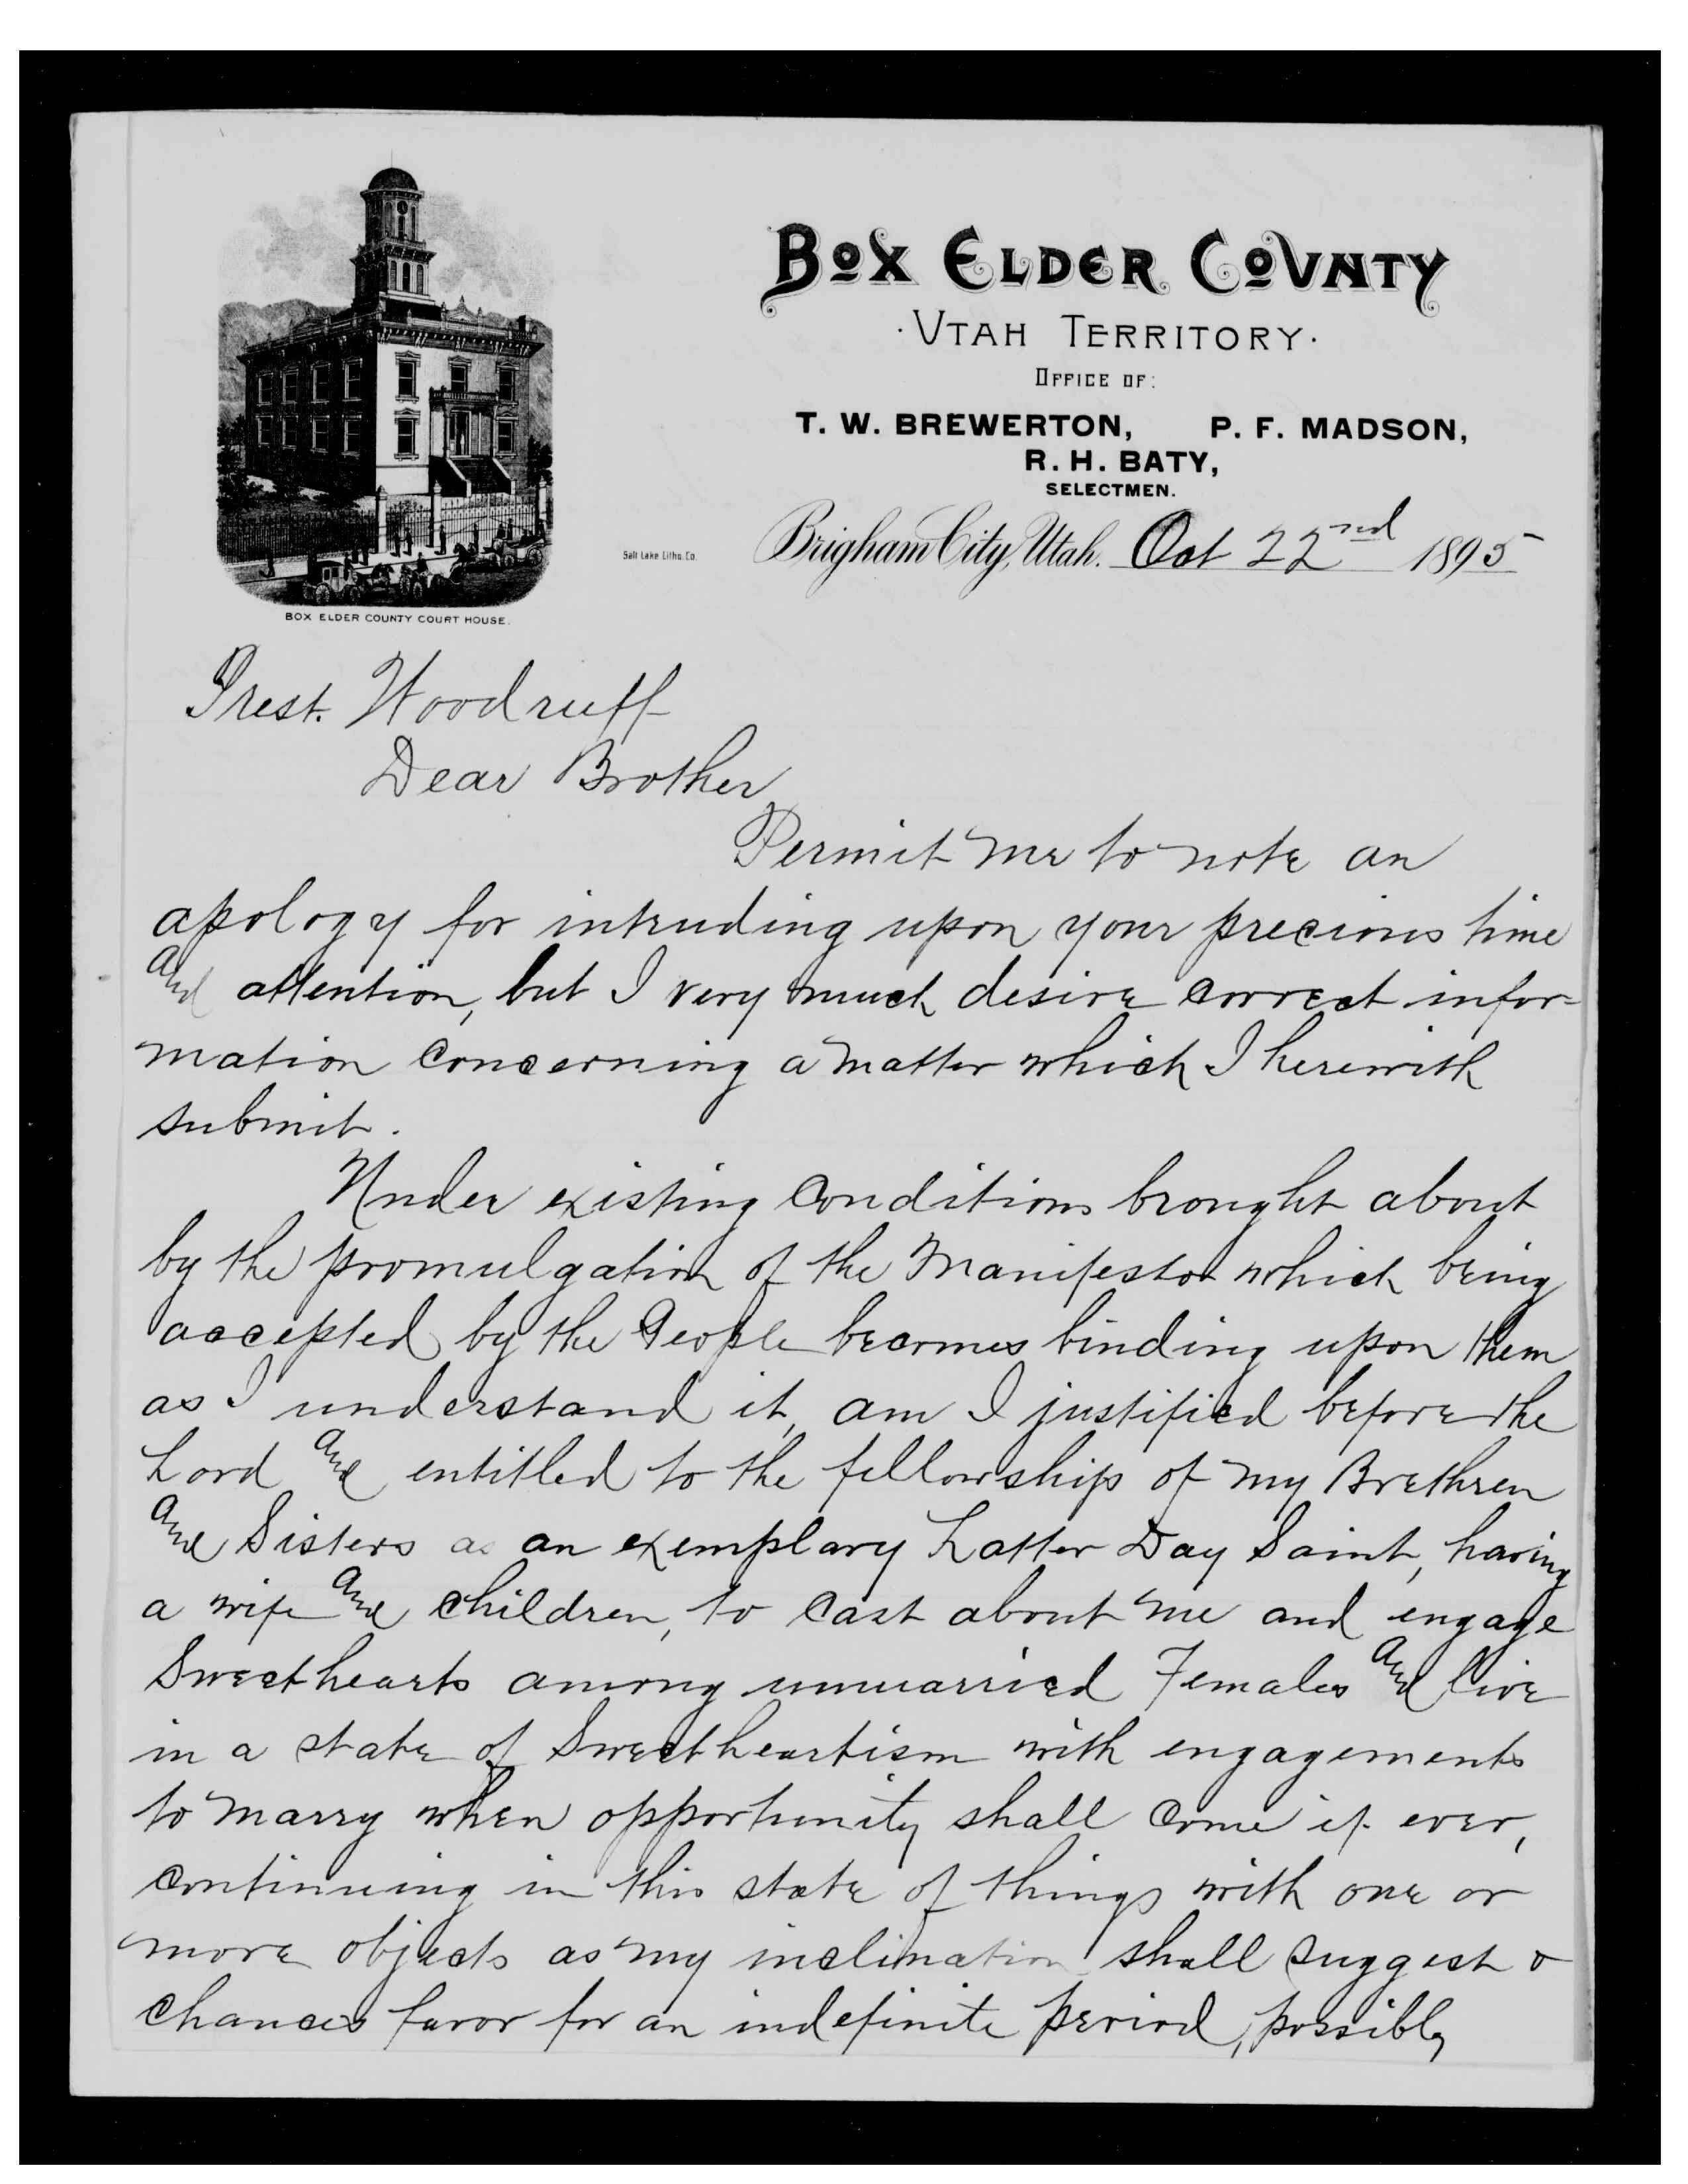 BOX ELDER COUNTY
·UTAH TERRITORY·
OFFICE OF:
T. W. BREWERTON, P. F. MADSON,
R. H. BATY,
SELECTMEN.
Salt Lake Litho. Co.
Brigham City, Utah. Oct 22nd 1895
BOX ELDER COUNTY COURT HOUSE.
Prest. Woodruff
Dear Brother
Permit me to note an
apology for intruding upon your precious time
and attention, but I very much desire correct infor-
mation concerning a matter which I herewith
submit.
Under existing conditions brought about
by the promulgation of the Manifesto which being
accepted by the People becomes binding upon them
as I understand it, am I justified before the
Lord and entitled to the fellowship of my Brethren
and Sisters as an exemplary Latter Day Saint, having
a wife and children, to cast about me and engage
Sweethearts among unmarried Females and live
in a state of Sweetheartism with engagements
to marry when opportunity shall come if ever,
continuing in this state of things with one or
more objects as my inclination shall suggest &
chances favor for an indefinite period, possibly